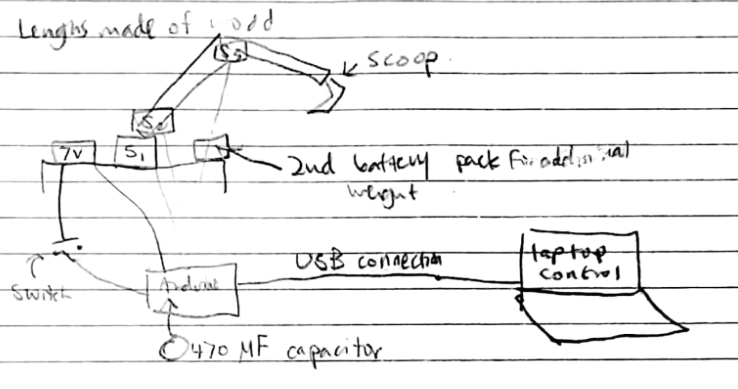 Lenghs made of wood
S3
scoop
S2
7V S1
2nd battery pack For additional
weight
USB connection
laptop
control
Switch
Arduino
470 MF capacitor